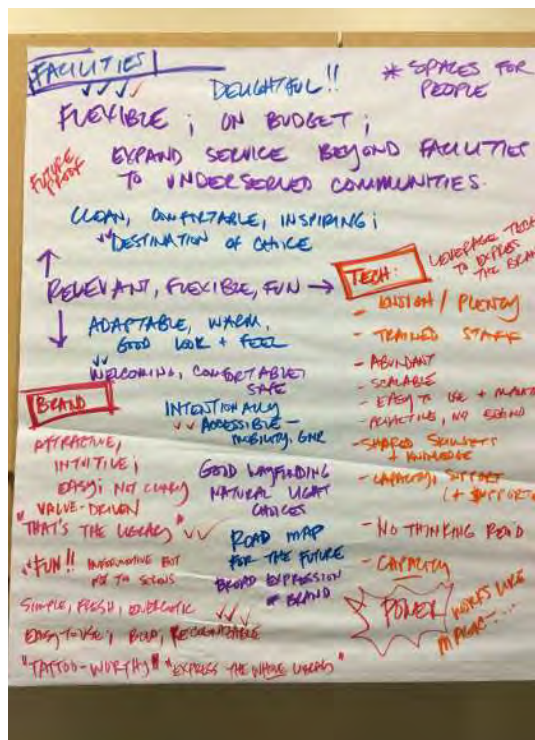 FACILITIES
DELIGHTFUL!!
* SPACES FOR
PEOPLE
FLEXIBLE; ON BUDGET;
FUTURE
PROOF
EXPAND SERVICE BEYOND FACILITIES
TO UNDERSERVED COMMUNITIES.
CLEAN, COMFORTABLE, INSPIRING;
DESTINATION OF CHOICE
RELEVANT, FLEXIBLE, FUN →
ADAPTABLE, WARM,
GOOD LOOK + FEEL
WELCOMING, COMFORTABLE,
SAFE
INTENTIONALLY
ACCESSIBLE -
MOBILITY,
GOOD WAYFINDING
NATURAL LIGHT
CHOICES
ROAD MAP
FOR THE FUTURE
BROAD EXPRESSION
OF BRAND
BRAND
ATTRACTIVE,
INTUITIVE;
EASY; NOT
VALUE-DRIVEN
"THAT'S THE LIBRARY"
FUN!! INFORMATIVE BUT
SIMPLE, FRESH, ENERGETIC
EASY-TO-USE; BOLD, RECOGNIZABLE
"TATTOO-WORTHY" "EXPRESS THE WHOLE LIBRARY"
TECH:
LEVERAGE TECH
TO EXPRESS
THE BRAND
/ PLENTY
- TRAINED STAFF
- ABUNDANT
- SCALABLE
- EASY TO USE +
- PROACTIVE, NO
- SHARED SKILLSETS
+ KNOWLEDGE
- CAPACITY, SUPPORT
- NO THINKING REQ'D
- CAPACITY
POWER
WORKS LIKE
MAGIC...